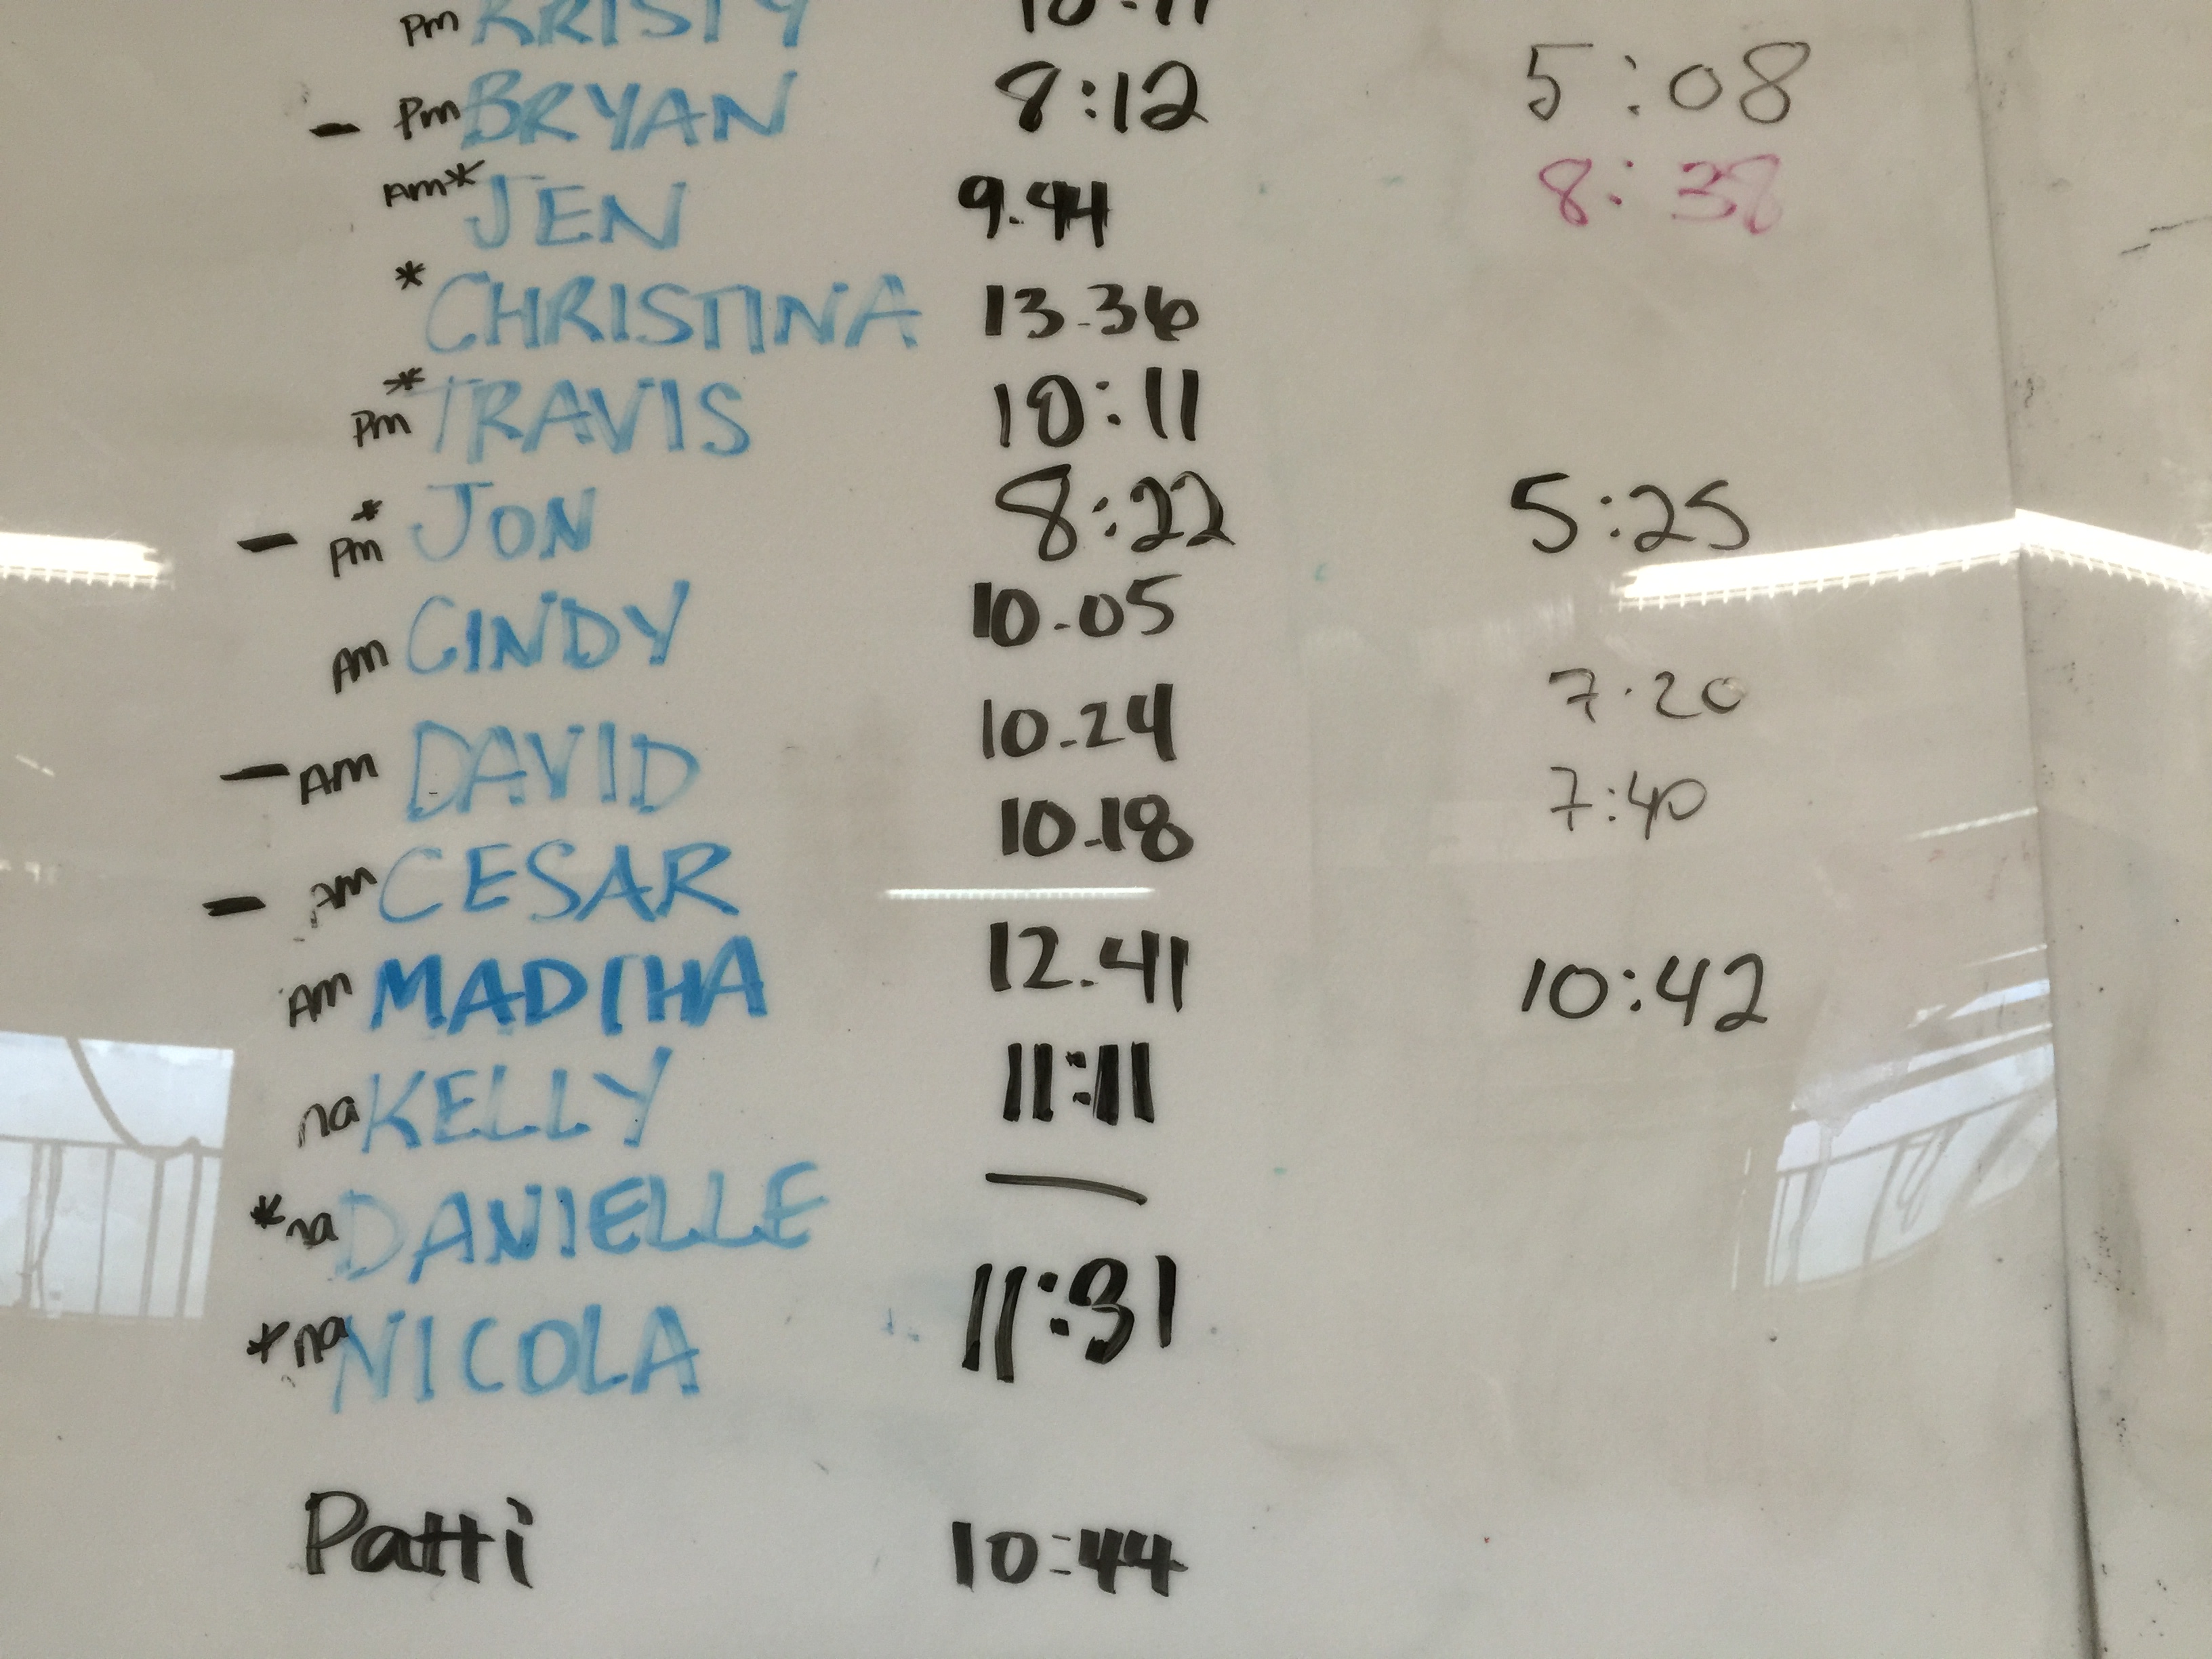 pm KRISTY
- pm BRYAN 8:12 5:08
Am* JEN 9.44 8:38
* CHRISTINA 13.36
* pm TRAVIS 10:11
- * pm JON 8:22 5:25
Am CINDY 10.05
- Am DAVID 10.24 7.20
- Am CESAR 10.18 7:40
Am MADIHA 12.41 10:42
na KELLY 11:11
* na DANIELLE —
* na NICOLA 11:31
Patti 10:44